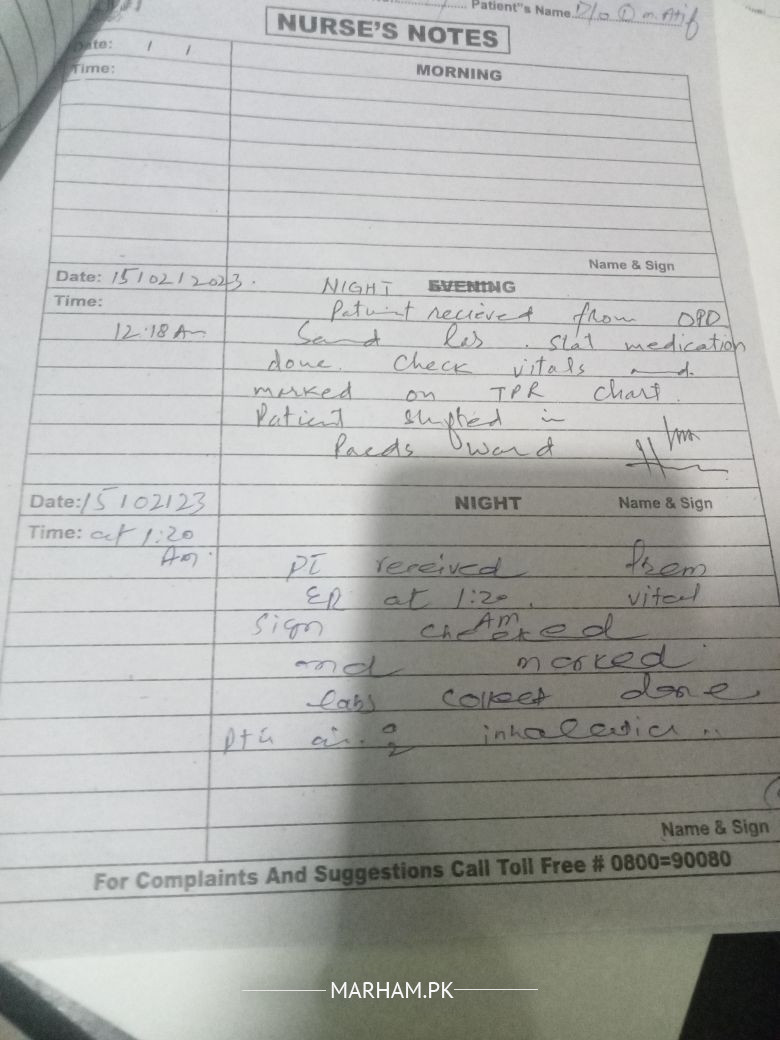 Patient"s Name D/o Atif
NURSE'S NOTES
Date: / /
Time: MORNING
Name & Sign
Date: 15/02/2023. NIGHT EVENING
Time: Patient recieved from OPD
12:18 Am Send labs. Stat medication
done. Check vitals and
marked on TPR chart.
Patient shifted in
Paeds Ward
Date: 15/02/23 NIGHT Name & Sign
Time: at 1:20
Am. PT received from
ER at 1:20 AM. vital
Sign checked
and marked
labs collect done
inhalation
Name & Sign
For Complaints And Suggestions Call Toll Free # 0800=90080
MARHAM.PK